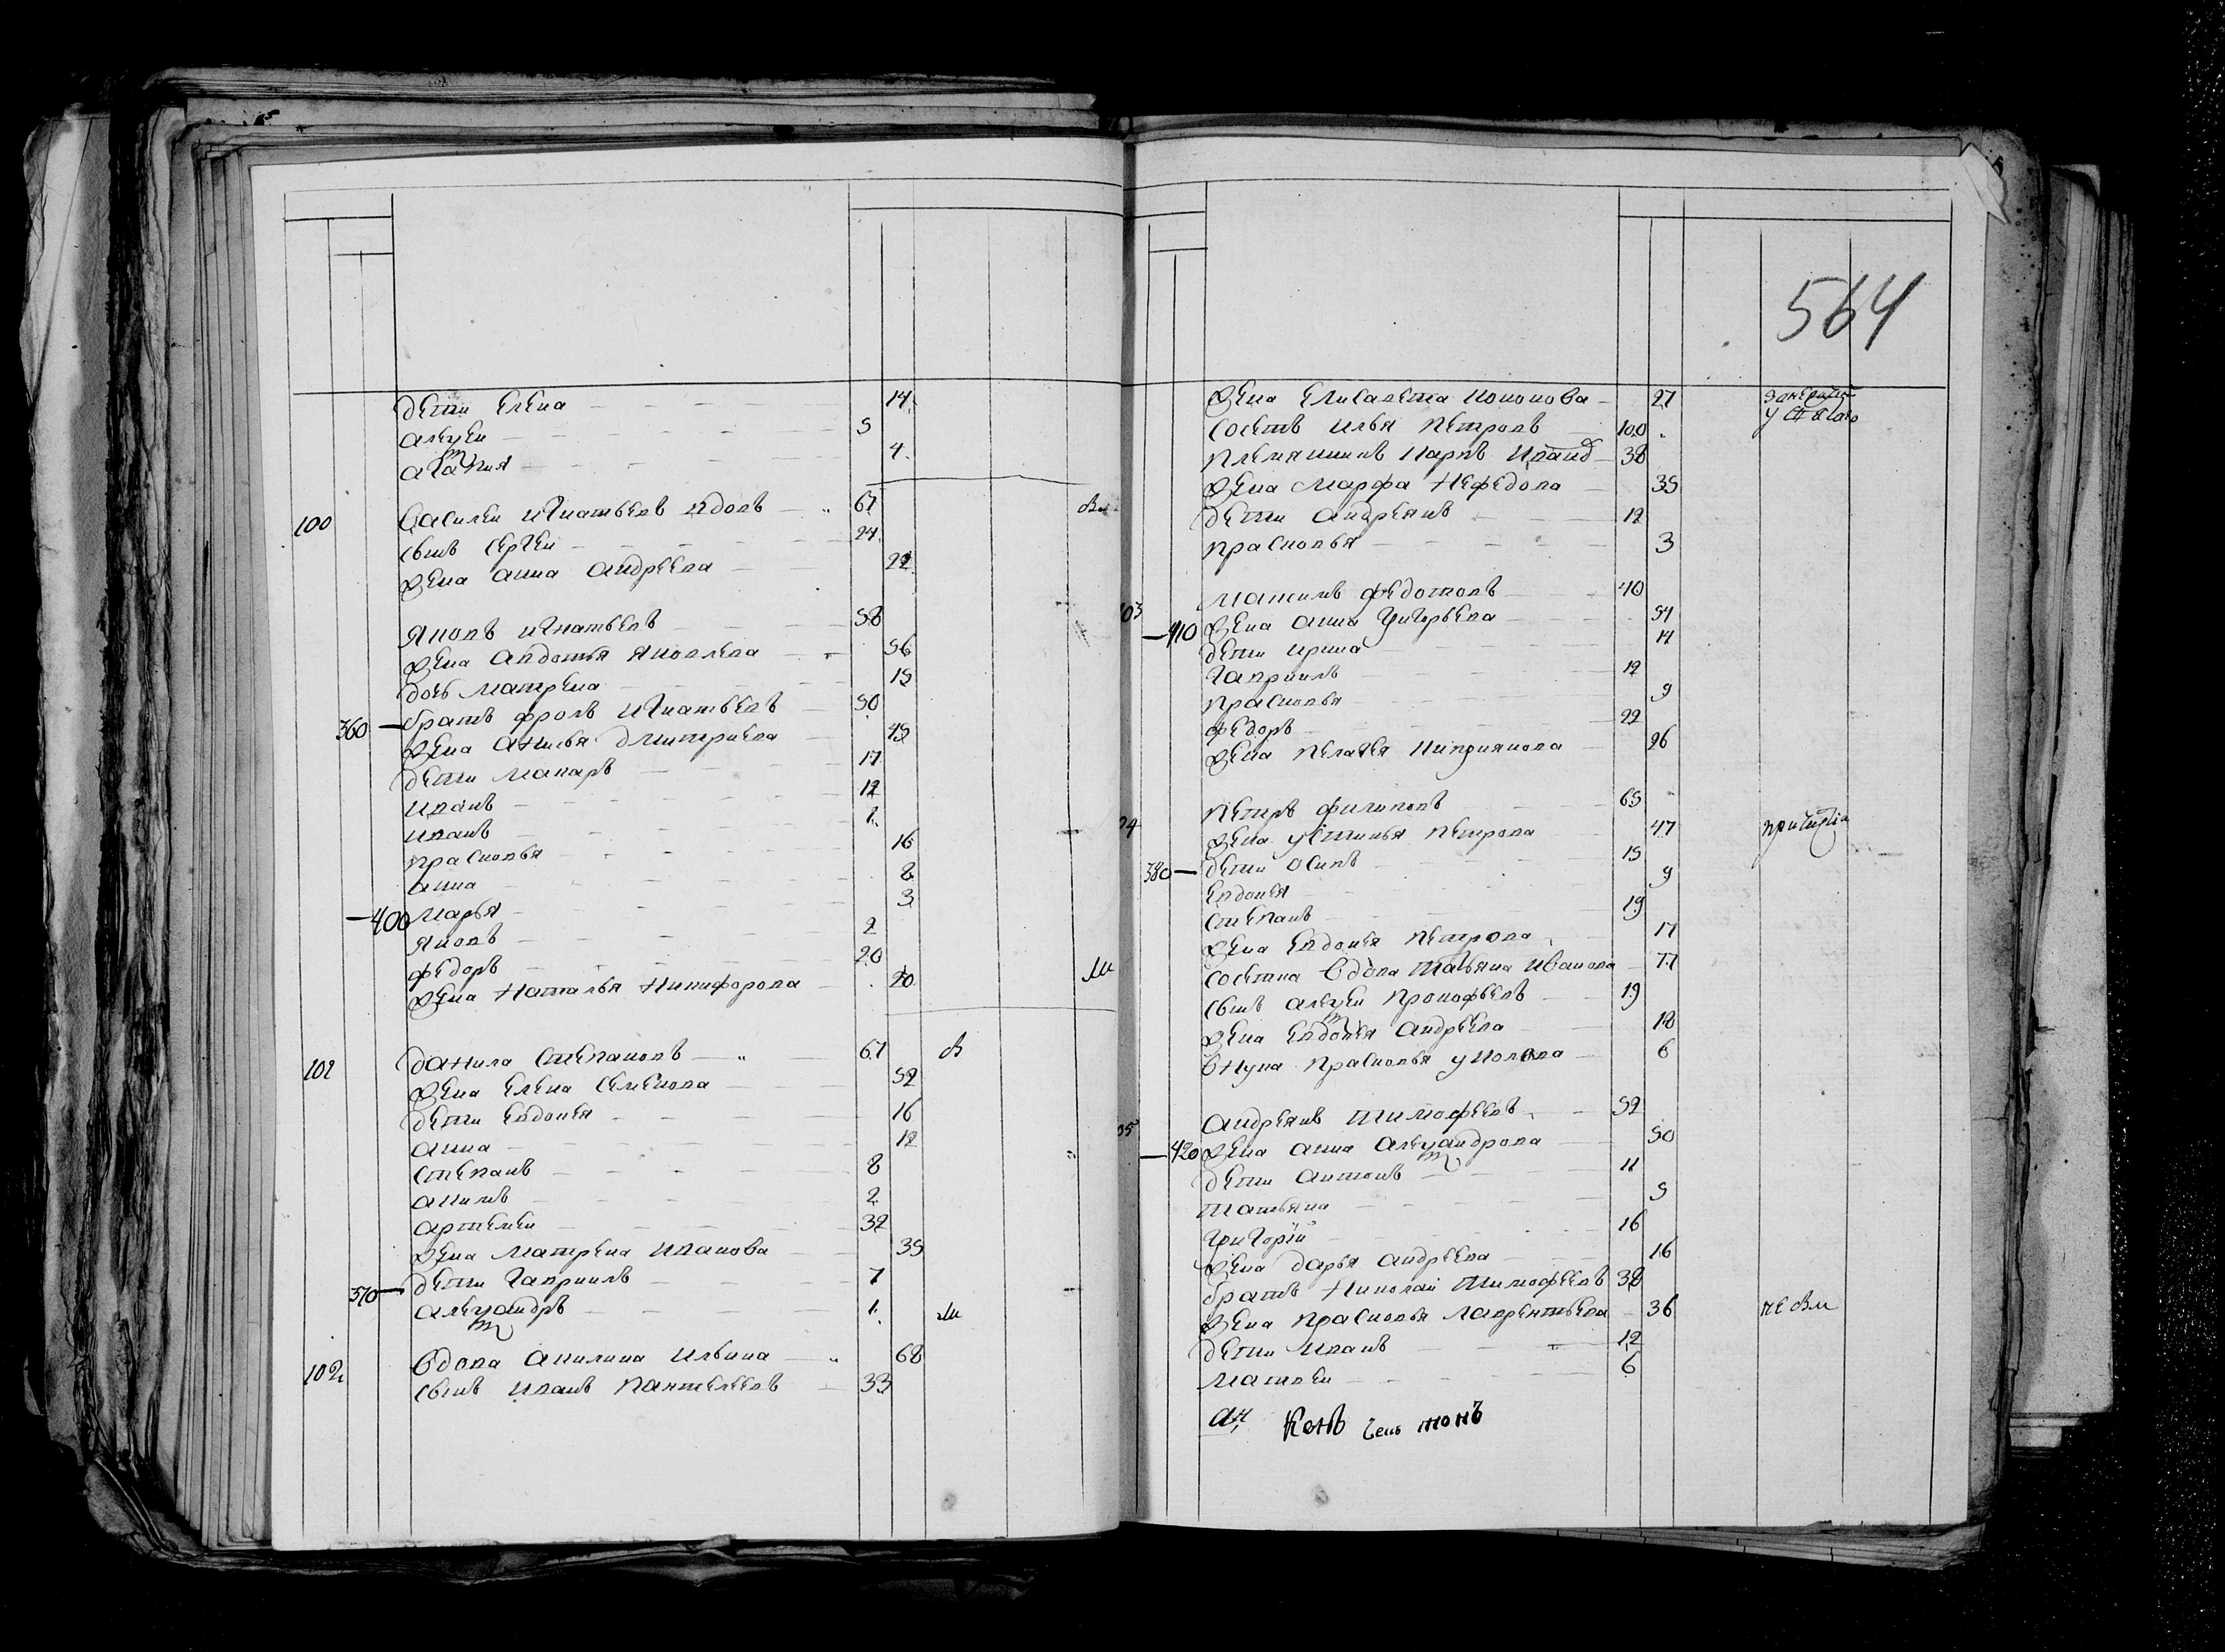 дети Елена 14
Алеѯей 5
Агапия 4
100 Василеи Игнатьевъ вдовъ 61 Вм
сынъ Сергеи 24
жена Анна Андреева 22
Яковъ Игнатьевъ 58
жена Авдотья Яковлева 56
дочь Матрена 15
360 братъ Фролъ Игнатьевъ 50
жена Анисья Дмитриева 45
дети Макаръ 17
Иванъ 12
Иванъ 1
Прасковья 16
Анна 8
400 Марья 3
Яковъ 2
Федоръ 20
жена Наталья Никифорова 20 М
101 Данила Степановъ 61 В
жена Елена Семенова 52
дети Евдокея 16
Анна 12
Степанъ 8
Акимъ 2
Артемеи 32
жена Матрена Иванова 35
370 дети Гавриилъ 7
Алеѯандръ 1 М
102 Вдова Акилина Ильина 68
сынъ Иванъ Пантелеевъ 33
564
жена Елисавета Кононова 27
соседъ Илья Петровъ 100 у св Я сего
племянникъ Карпъ Иванд 38
жена Марфа Нефедова 35
дети Андреянъ 12
Прасковья 3
103 Максимъ Федотовъ 40
410 жена Анна Григорьева 54
дети Ирина 14
Гавриилъ 12
Прасковья 9
Федоръ 22
жена Пелагея Киприянова 26
04 Петръ Филиповъ 65
жена Устинья Петрова 47
380 дети Осипъ 15
Евдокея 9
Степанъ 19
жена Евдокея Петрова 17
соседка вдова Татьяна Иванова 77
сынъ Алеѯей Прокофьевъ 19
жена Евдокея Андреева 18
внука Прасковья 6
05 Андреянъ Тимофеевъ 52
420 жена Анна Алеѯандрова 50
дети Антонъ 11
Татьяна 5
Григорій 16
жена Дарья Андреева 16
братъ Николай Тимофеевъ 38
жена Прасковья Лаврентьева 36 не Вм
дети Иванъ 12
Матвеи 6